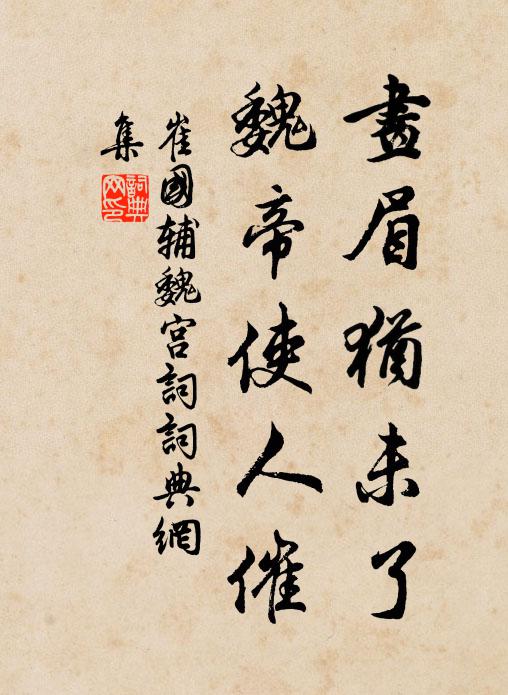 畫眉猶未了
魏帝使人催
崔國辅魏宫詞詞典網
集
詞典
网印